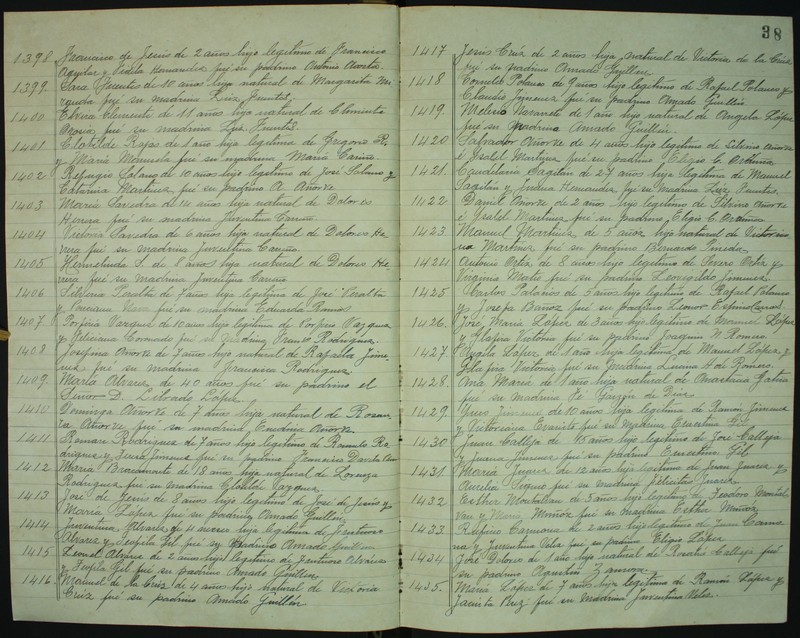 38
1398 Francisco de Jesús de 2 años hijo legítimo de Francisco
Aguilar y Hernandez fué su padrino Antonio Acosta.
1399. Sara Fuentes de 10 años hija natural de Margarita
fué su madrina Luz Fuentes.
1400 Elvira Clemente de 11 años hija natural de Clementa
fué su madrina Luz Fuentes
1401 Clotilde Rojas de 1 año hija legítima de Gregorio R.
y María Manuela fué su madrina María
1402 Refugio Solano de 10 años hijo legítimo de José Solano y
Catarina Martinez fué su padrino A. Añorve
1403 María Saavedra de 14 años hija natural de Dolores
Herrera fué su madrina Juventina
1404 Victoria Saavedra de 6 años hija natural de Dolores He
rrera fué su madrina Juventina
1405 Hermelinda S. de 8 años hija natural de Dolores He
rrera fué su madrina Juventina
1406 Silveria Peralta de 7 años hija legítima de José Peralta
y fué su madrina Eduarda Ramos
1407 Porfiria Vazquez de 10 años hija legítima de Porfirio Vazquez
y Feliciana Coronado fué el padrino Rodriguez.
1408 Josefina Añorve de 7 años hija natural de Rafaila Jime
nez fué su madrina Francisca Rodriguez
1409. María Alvarez de 40 años fué su padrino el
Señor D. Librado López
1410 Dominga Añorve de 7 años hija natural de Rosau
ra Añorve fué su madrina Añorve
1411 Ramon Rodriguez de 7 años hijo legítimo de Romulo Ro
driguez y Jimenez fué su padrino Francisco
1412 María de 18 años hija natural de Lorenza
Rodriguez fué su madrina
1413 José de Jesús de 8 años hijo legítimo de José de Jesús y
María López fué su padrino Amado Guillen
1414 Juventina Alvarez de 4 meses hija legítima de Juventino
Alvarez y Teofila Gil fué su padrino Amado Guillen
1415 Leonel Alvarez de 2 años hijo legítimo de Juventino Alvarez
y Teofila Gil fué su padrino Amado Guillen
1416 Manuel de la Cruz de 4 años hijo natural de Victoria
Cruz fué su padrino Amado Guillén
1417 Jesús Cruz de 2 años hija natural de Victoria de la Cruz
fué su padrino Amado Guillen
1418 Polanos de 9 años hijo legítimo de Rafael Polanos y
Claudia Jimenez fué su padrino Amado Guillén
1419 Nazareth de 1 año hijo natural de Angela López
fué su padrino Amado Guillén.
1420 Salvador Añorve de 4 años hijo legítimo de Añorve
é Isabel Martinez fué su padrino Eligio C.
1421. Candelaria Sagitan de 27 años hija legítima de Manuel
Sagitan y Hernandez fué su madrina Luz Fuentes
1422 Daniel Añorve de 2 años hijo legítimo de Añorve
é Isabel Martinez fué su padrino Eligio C.
1423 Manuel Martinez de 5 años hijo natural de Victoria
na Martinez fué su padrino Bernardo Pineda
1424 Antonio Ortiz de 8 años hijo legítimo de Severo Ortiz y
Virginia Mateo fué su padrino Leovigildo Jimenez
1425 Carlos Polanos de 3 años hijo legítimo de Rafael Polanos
y Josefa Baños fué su padrino Leonor
1426. José María López de 3 años hijo legítimo de Manuel López
y Glafira Victoria fué su padrino Joaquin A. Romero
1427. Angela López de 1 año hija legítima de Manuel López y
Glafira Victoria fué su madrina A de Romero.
1428. Ana María de 1 año hija natural de
fué su madrina Garzón de
1429. Jimenez de 10 años hija legítima de Ramón Jimenez
y fué su madrina Celestina Gil
1430 Juan Calleja de 15 años hijo legítimo de José Calleja
y Juana Jimenez fué su padrino Gil
1431. María Juarez de 12 años hija legítima de Juan Juarez y
Aurelia fué su madrina Felicitas Juarez
1432 Esther Montalvan de 3 años hija legítima de Teodoro Montal
van y María Muñoz fué su madrina Esther Muñoz
1433. Rufino Carmona de 2 años hijo legítimo de Juan Carmo
na y Juventina Velez fué su padrino Eligio López
1434 José Dolores de 1 año hijo natural de Rosario Calleja fué
su padrino Agustin Zamora.
1435. María López de 7 años hija legítima de Ramón López y
Jacinta fué su madrina Juventina Velez.